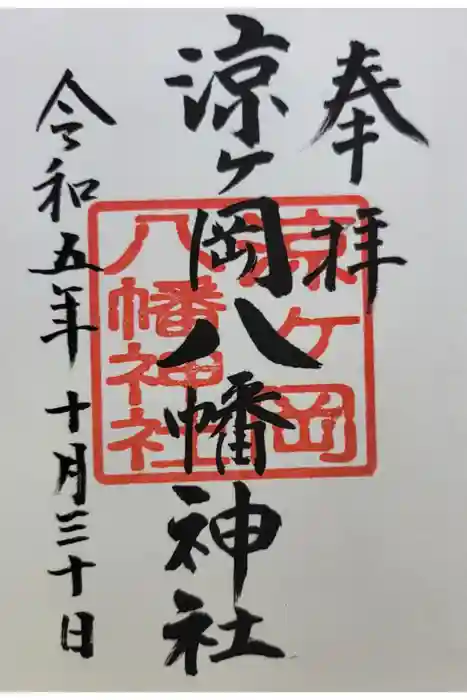 奉拝
涼ケ岡八幡神社
涼ケ岡
八幡神社
令和五年十月三十日